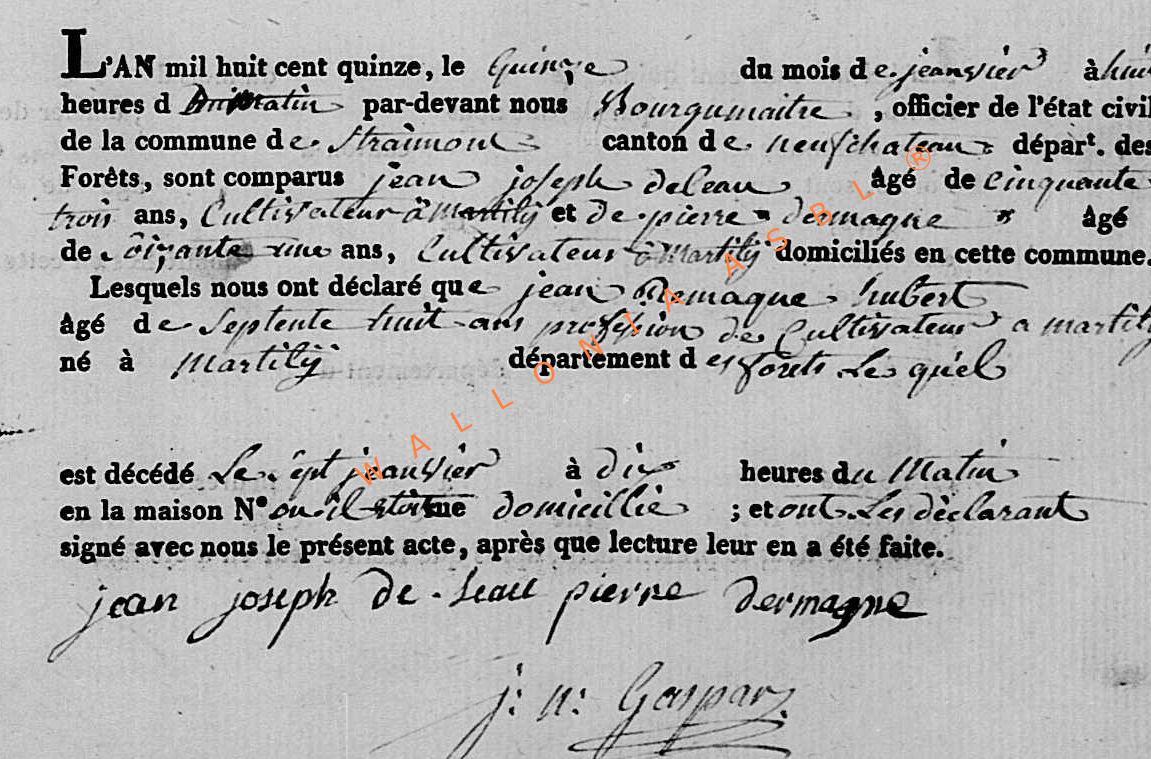 L'AN mil huit cent quinze, le Quinze du mois de jeanvier à huit
heures d du Matin par-devant nous Bourgumaitre, officier de l'état civil
de la commune de Straimont canton de neufchateau dépar. des
Forêts, sont comparus jean joseph deleau âgé de cinquante
trois ans, Cultivateur à Martilij et de pierre dermagne âgé
de soixante une ans, Cultivateur à Martilij domiciliés en cette commune.
Lesquels nous ont déclaré que jean Demaque hubert
âgé de Septente huit ans profession de Cultivateur a martilij
né à Martilij département des forêts Le quél
est décédé Le sept jeanvier à dix heures du Matin
en la maison N° ou il etoit domicillié ; et ont Les déclarant
signé avec nous le présent acte, après que lecture leur en a été faite.
jean joseph de Leau pierre dermagne
j: n: Gaspar
WALLONIA ASBL ®